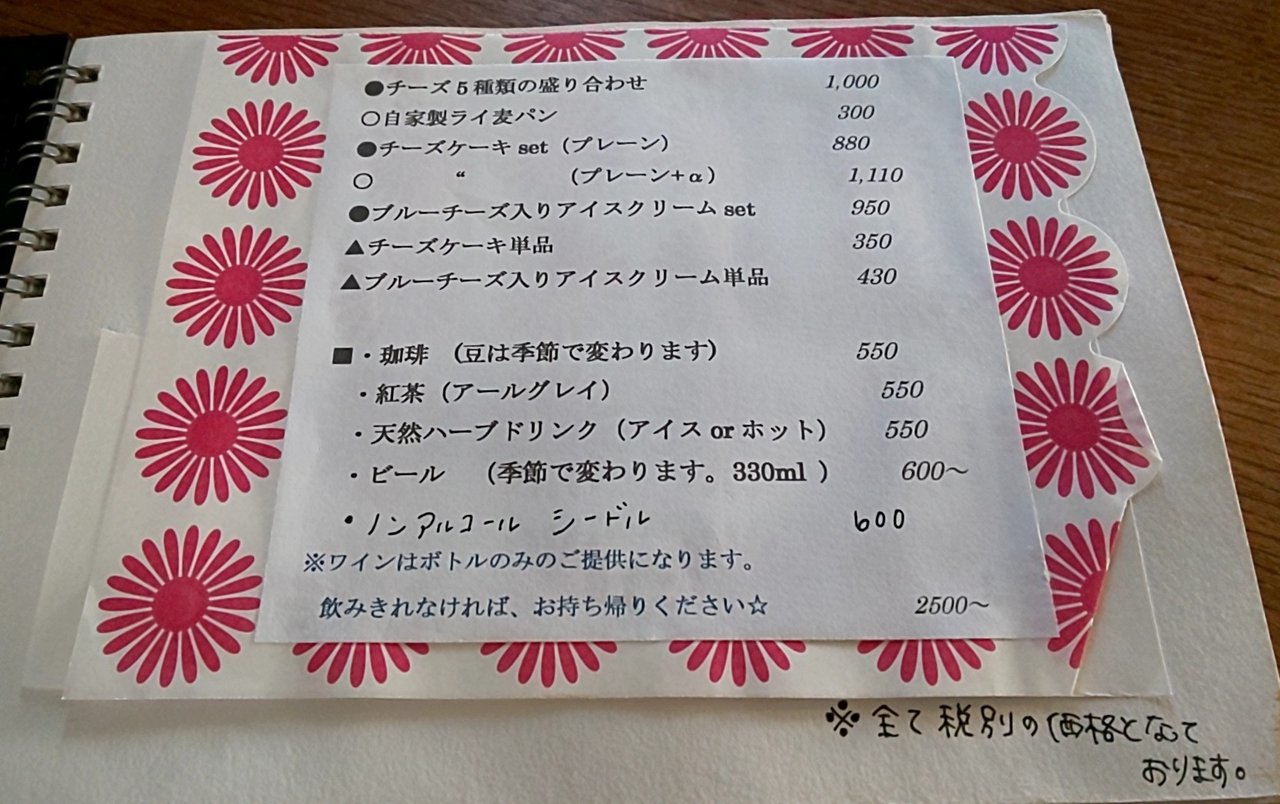 ●チーズ5種類の盛り合わせ 1,000
○自家製ライ麦パン 300
●チーズケーキset（プレーン） 880
○ “ （プレーン+α） 1,110
●ブルーチーズ入りアイスクリームset 950
▲チーズケーキ単品 350
▲ブルーチーズ入りアイスクリーム単品 430
■・珈琲 （豆は季節で変わります） 550
・紅茶（アールグレイ） 550
・天然ハーブドリンク（アイスorホット） 550
・ビール （季節で変わります。330ml ） 600～
・ノンアルコール シードル 600
※ワインはボトルのみのご提供になります。
飲みきれなければ、お持ち帰りください☆ 2500～
※全て税別の価格となって
おります。